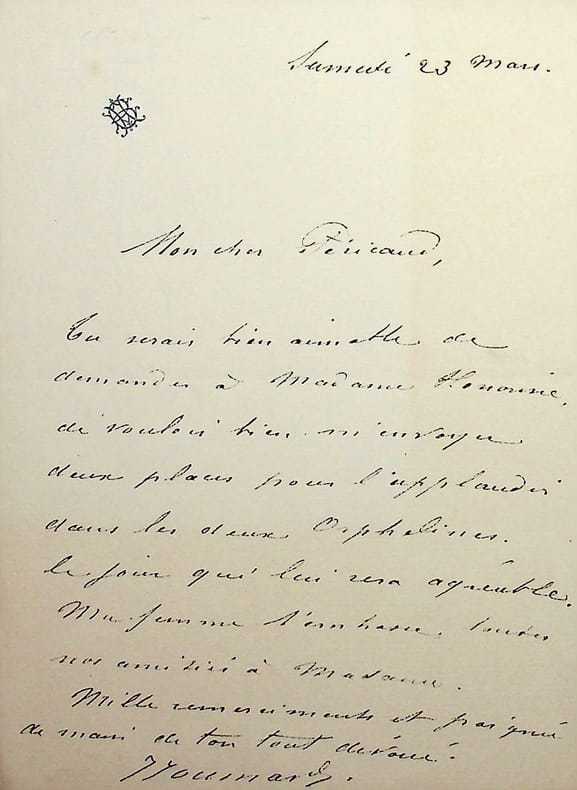 Samedi 23 Mars.
Mon cher Péricaud,
Tu serais bien aimable de
demander à Madame Honorine,
de vouloir bien m'envoyer
deux places pour l'applaudir
dans les deux Orphelines.
le jour qui lui sera agréable.
Ma femme t'embrasse, toutes
nos amitiés à Madame.
Mille remerciments et poignée
de main de ton tout dévoué.